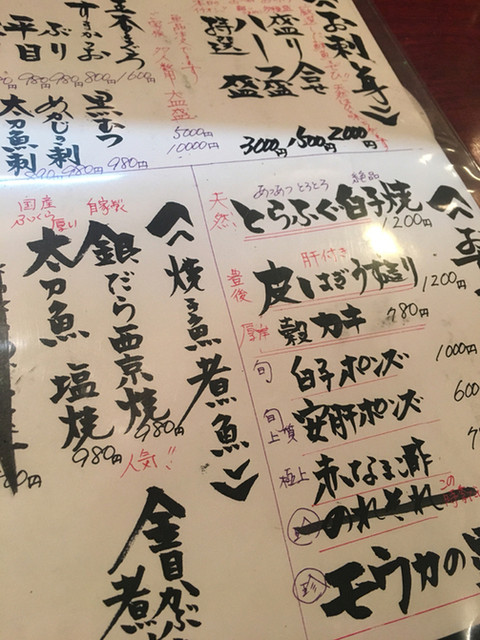 お刺身
盛り合せ
2000円
ハーフ盛
1500円
特選盛
3000円
大皿盛
5000円
10000円
1600円
すきみかお
800円
ぶり
980円
平目
980円
黒むつ
980円
めかじき刺
980円
太刀魚刺
天然
あつあつ とろとろ
絶品
とらふぐ白子焼
1200円
豊後
肝付き
皮はぎうす造り
1200円
厚岸
殻カキ
780円
旬
白子ポンズ
1000円
旬
上質
安肝ポンズ
600
極上
赤なまこ酢
珍
のれそれ
珍
モウカの
焼魚 煮魚
自家製
銀だら西京焼
980円
人気!!
国産
ふっくら
厚い
太刀魚 塩焼
980円
金目かぶ
煮